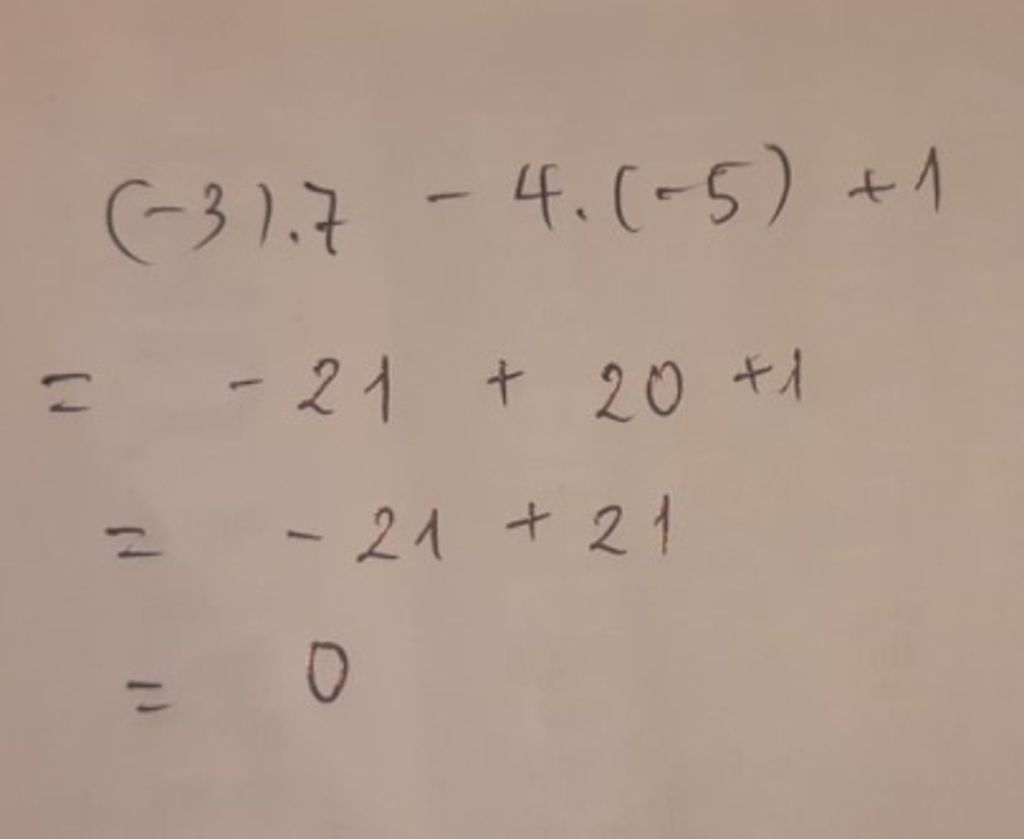 (-3).7 - 4.(-5) +1
= - 21 + 20 +1
= - 21 + 21
= 0